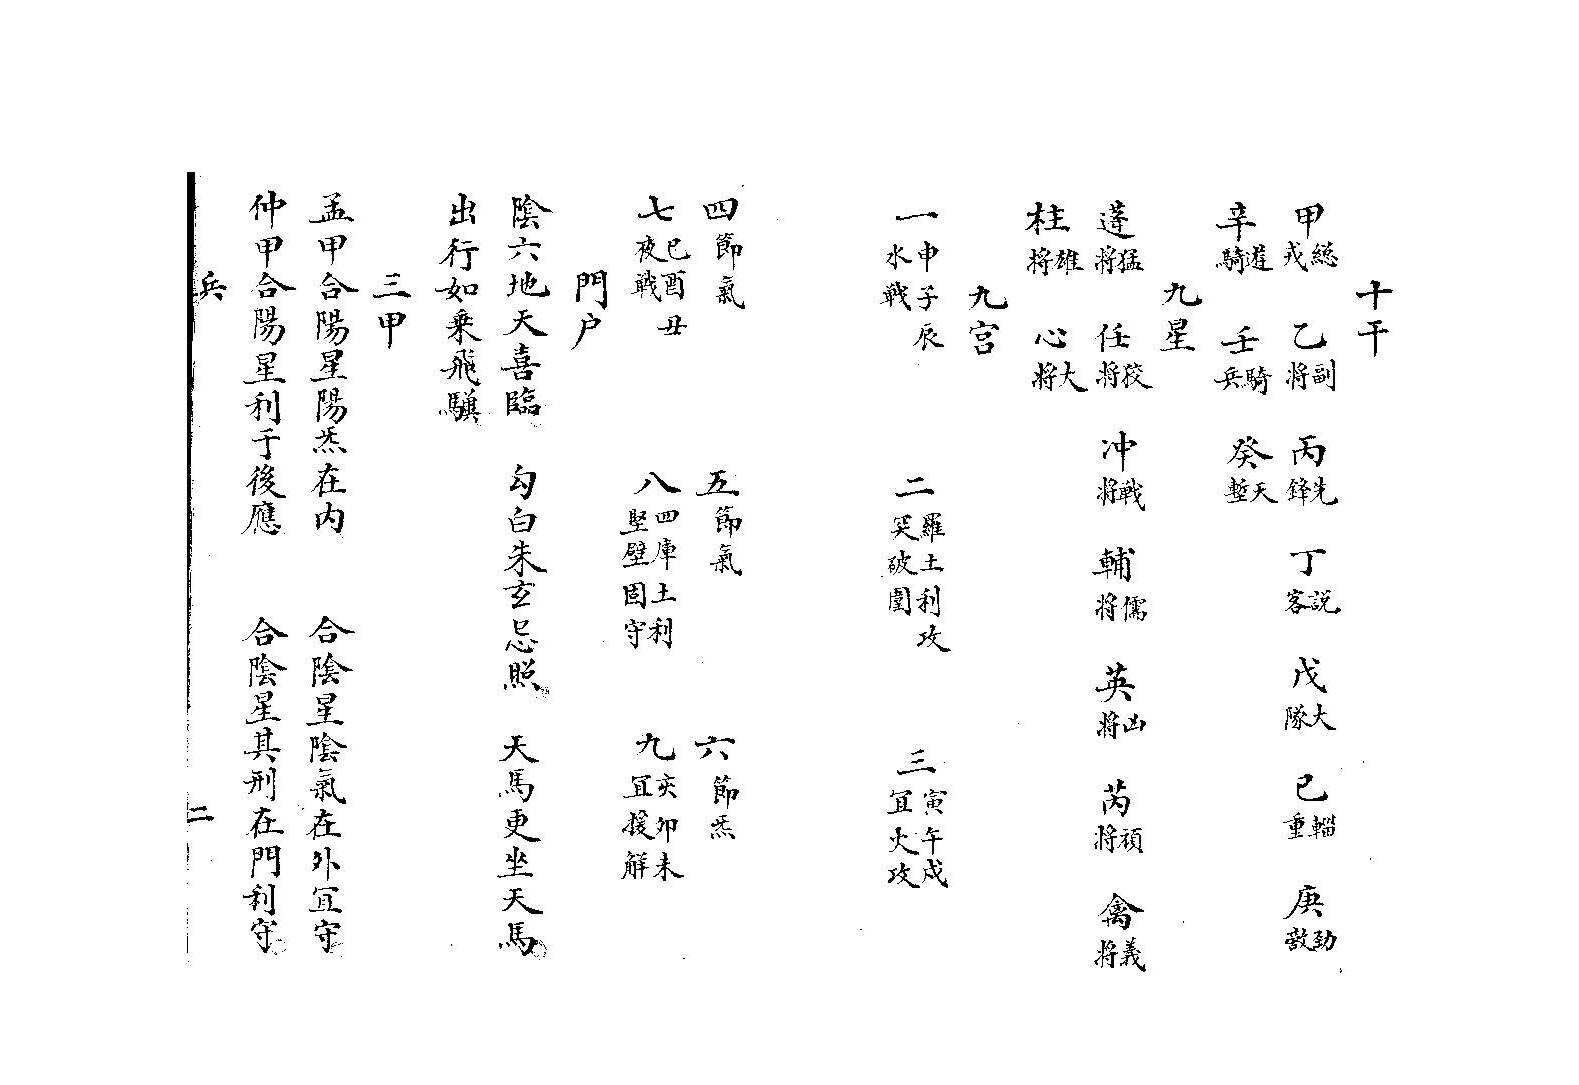 十干
甲総戎 乙副將 丙先鋒 丁説客 戊大隊 已輜重 庚勁敵
辛遊騎 壬騎兵 癸天塹
九星
蓬猛將 任狡將 冲戰將 輔儒將 英凶將 芮頑將 禽義將
柱雄將 心大將
九宫
一申子辰水戰 二羅土利攻突破圍 三寅午戌冝火攻
四節氣 五節氣 六節炁
七巳酉丑夜戰 八四庫土利堅壁固守 九亥卯未冝援解
門户
陰六地天喜臨 勾白朱玄忌照 天馬更坐天馬
出行如乗飛騏
三甲
孟甲合陽星陽炁在内 合陰星陰氣在外冝守
仲甲合陽星利于後應 合陰星其刑在門利守
兵 二